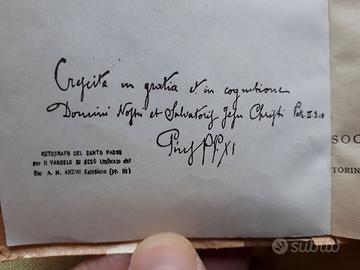 Crescite in gratia et in cognitione
Domini Nostri et Salvatoris Jesu Christi Petr. II. 3. 18
Pius PP. XI
AUTOGRAFO DEL SANTO PADRE
per IL VANGELO DI GESÙ Unificato dal
Sac. A. M. ANZINI Salesiano
SOC
TORIN
subito